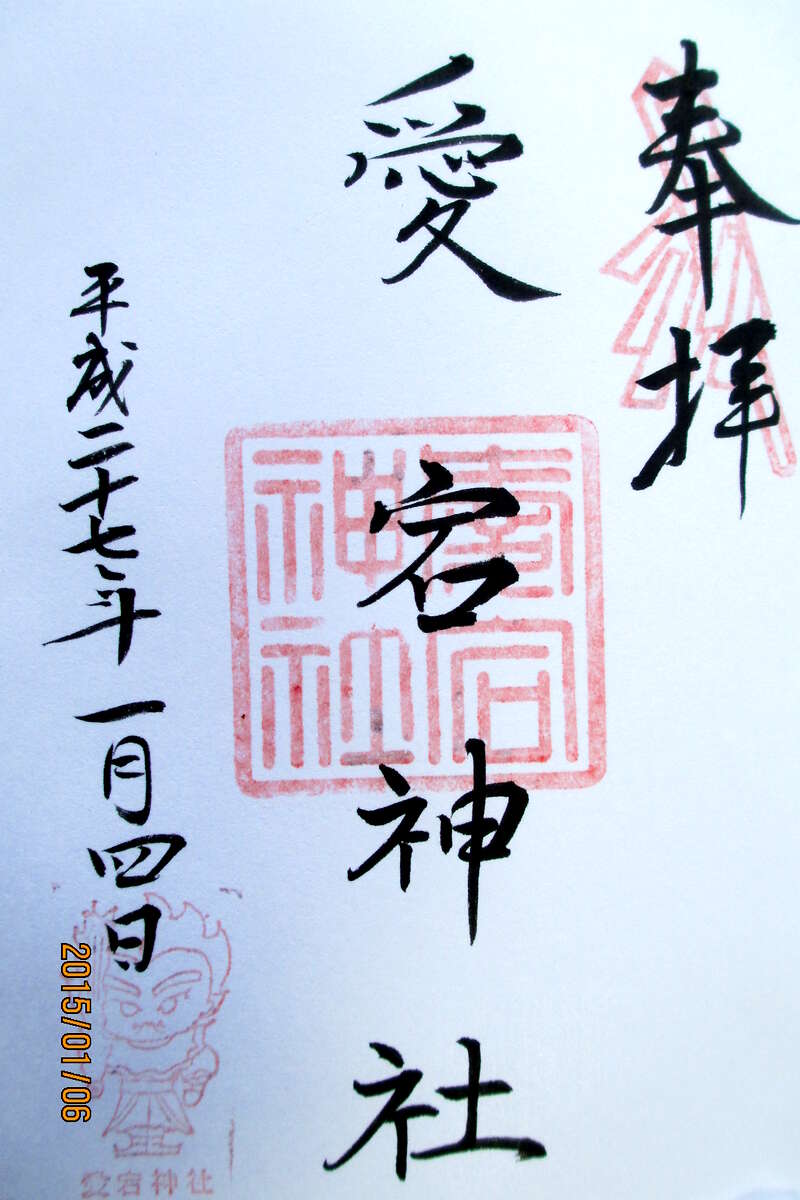 奉拝
愛宕神社
愛宕神社
平成二十七年一月四日
愛宕神社
2015/01/06